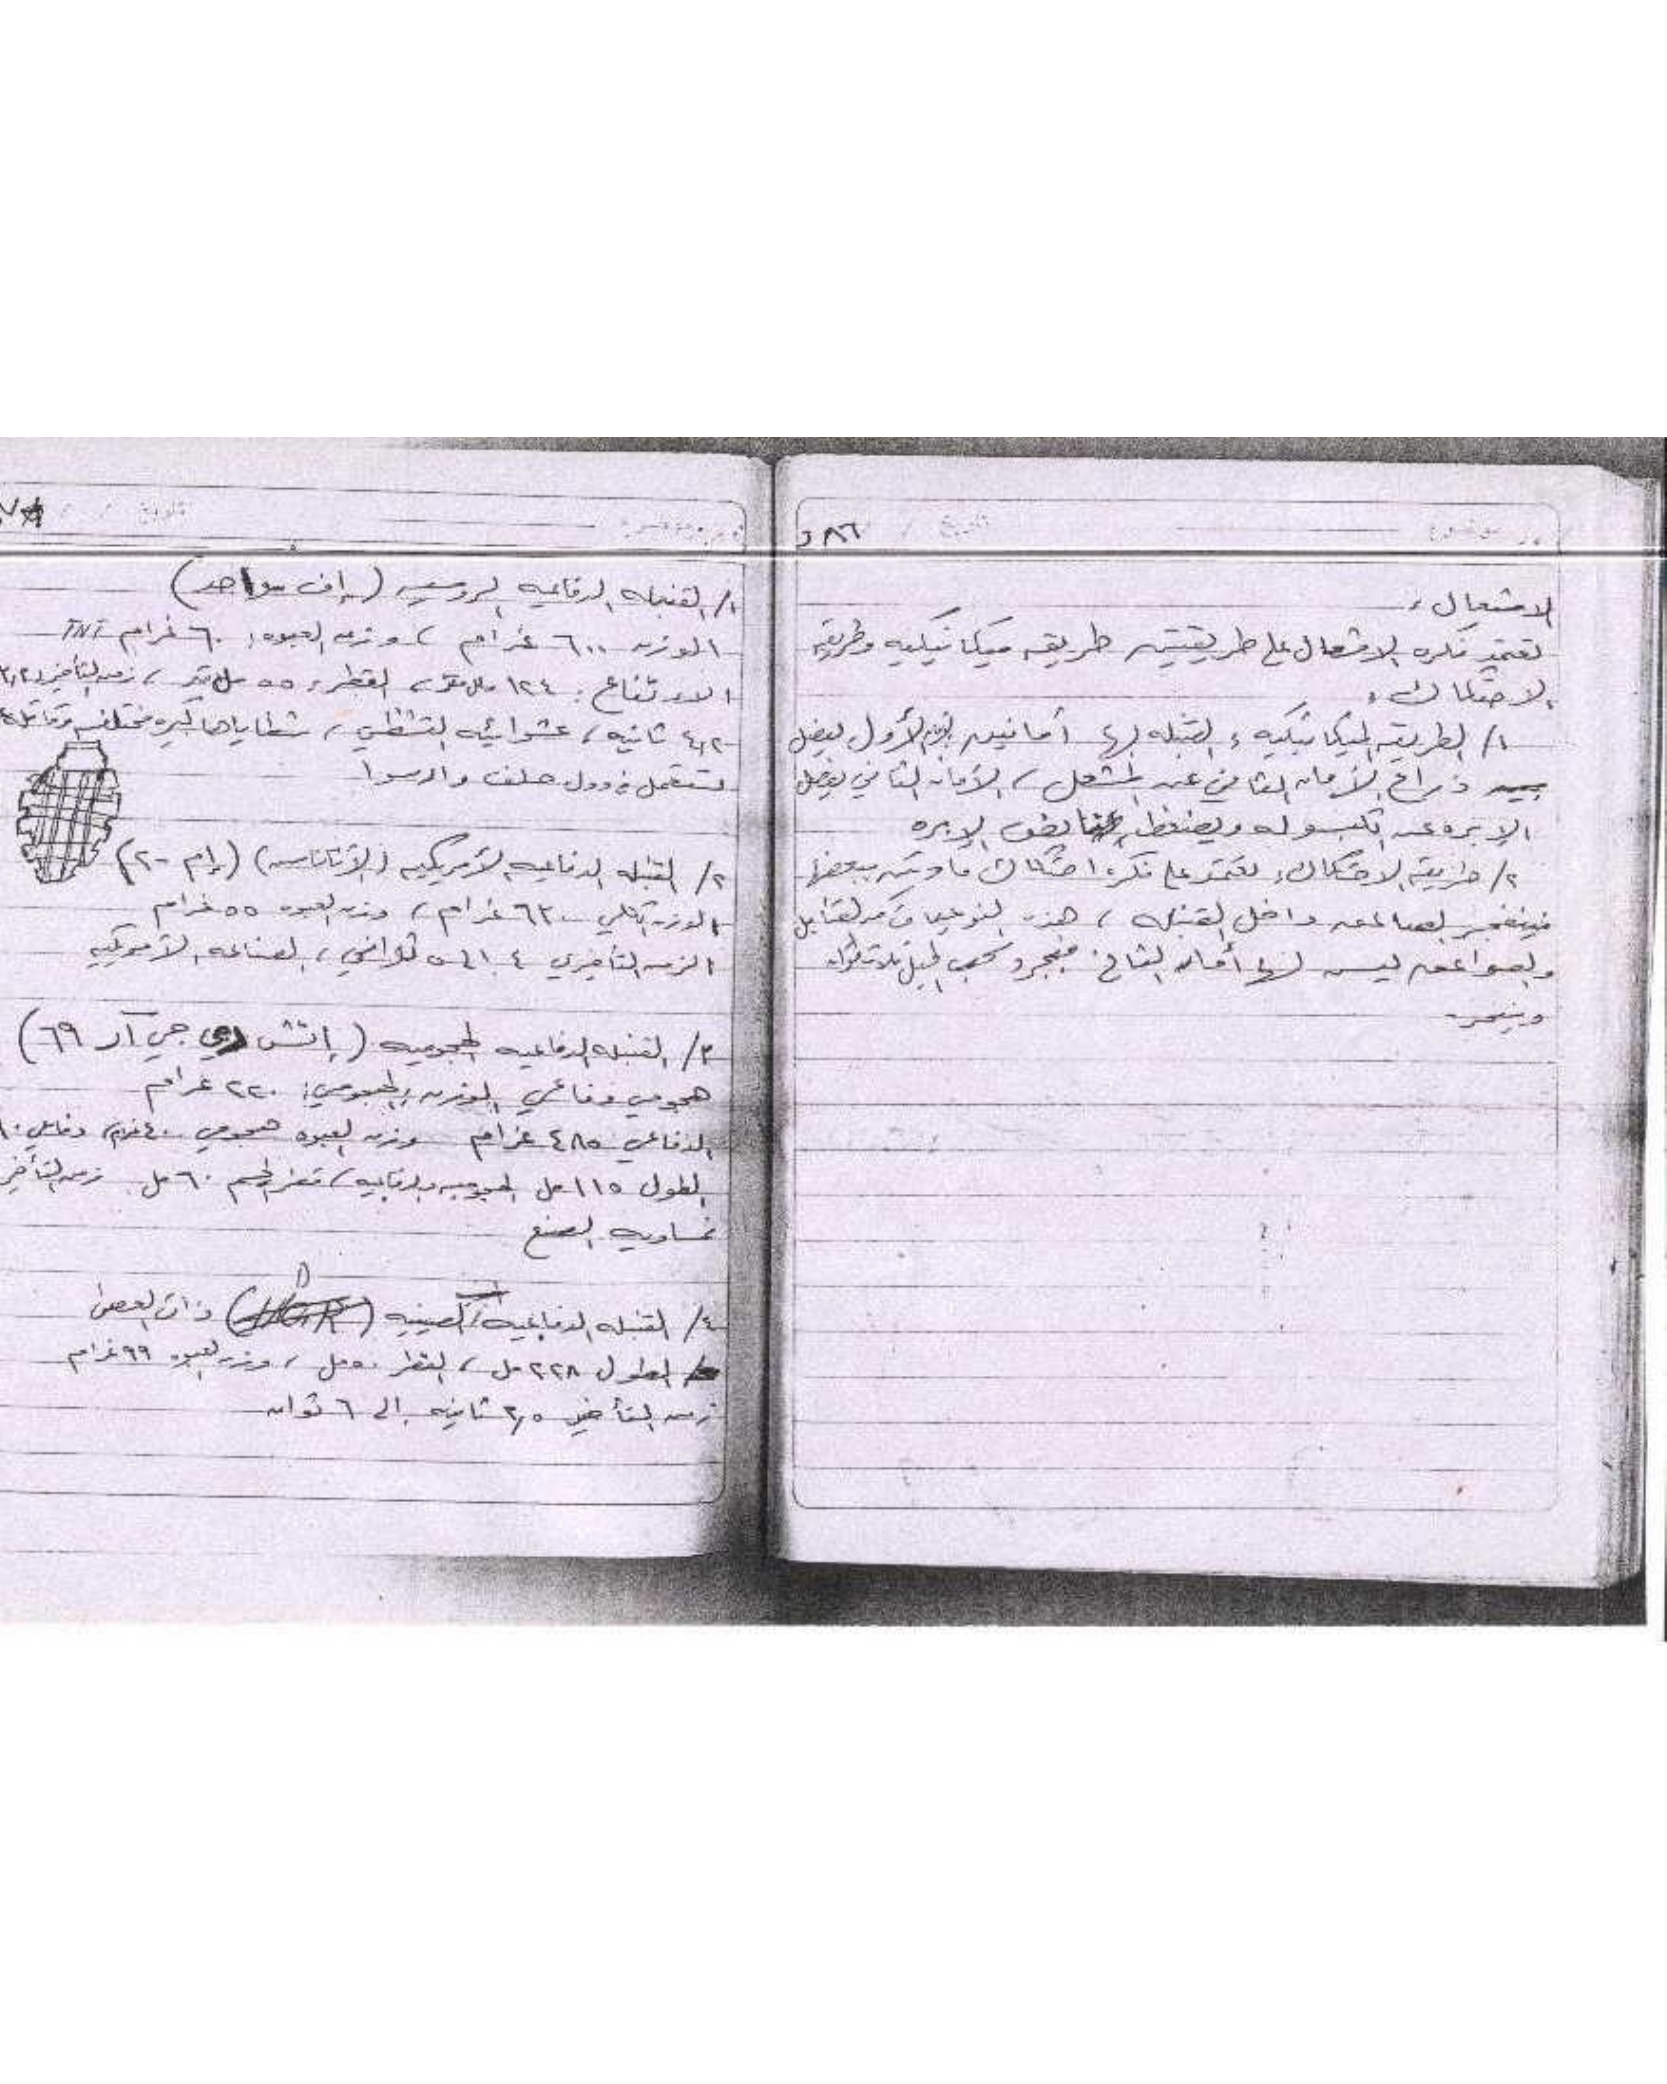 الاشتعال:
تعتمد فكره الاشتعال على طريقتين طريقه ميكانيكيه وطريقه
الاحتكاك:
١/ الطريقه الميكانيكيه: القنبله لها أمانين الأول يفصل
ذراع الأمان الثاني عن المشعل، الأمان الثاني يفصل
الإبره عن الكبسوله ويضغط الإبره
٢/ طريقه الاحتكاك: تعتمد على فكره احتكاك مادتين ببعضها
فينفجر الصاعق داخل القنبله، هذه النوعيات من القنابل
والصواعق ليس لها أمان
٨٦
١/ القنبله الدفاعيه الروسيه (إف واحد)
الوزن ٦٠٠ غرام، وزن العبوه: ٦٠ غرام TNT
الارتفاع: ١٢٤ القطر: ٥٥ ملي متر، زمن التأخير ٣,٢
٤,٢ ثانيه، عشوائيه التشظي، شظاياها كبيره مختلفه وقاتله
تستعمل في دول حلف وارسوا
٢/ القنبله الدفاعيه الأمريكيه (الأناناس) (إم -٢)
الوزن الكلي ٦٣٠ غرام، وزن العبوه ٥٥ غرام
الزمن التأخيري ٤ الى ٥ ثواني، الصناعه الأمريكيه
٣/ القنبله الدفاعيه الهجوميه (إتش جي آر ٦٩)
هجومي دفاعي الوزن الهجومي: ٢٢٠ غرام
الدفاعي ٤٨٥ غرام وزن العبوه هجومي ٤٠ غرام، دفاعي
الطول ١١٥ مل الهجوميه والدفاعيه، قطر الجسم ٦٠ مل زمن التأخير
نمساويه الصنع
٤/ القنبله الدفاعيه الصينيه ذات العصا
الطول ٢٢٨ مل، القطر ٥٠ مل، وزن العبوه ٩٩ غرام
زمن التأخير ٢,٥ ثانيه إلى ٦ ثوان